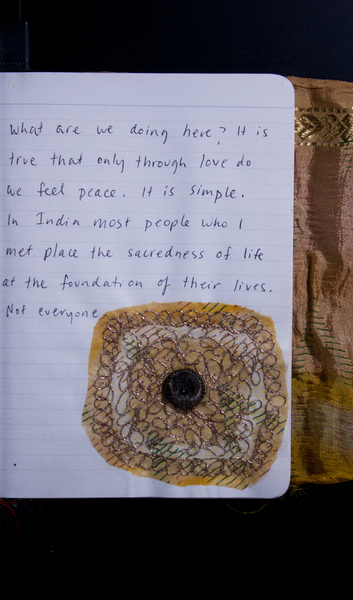 What are we doing here? It is
true that only through love do
we feel peace. It is simple.
In India most people who I
met place the sacredness of life
at the foundation of their lives.
Not everyone